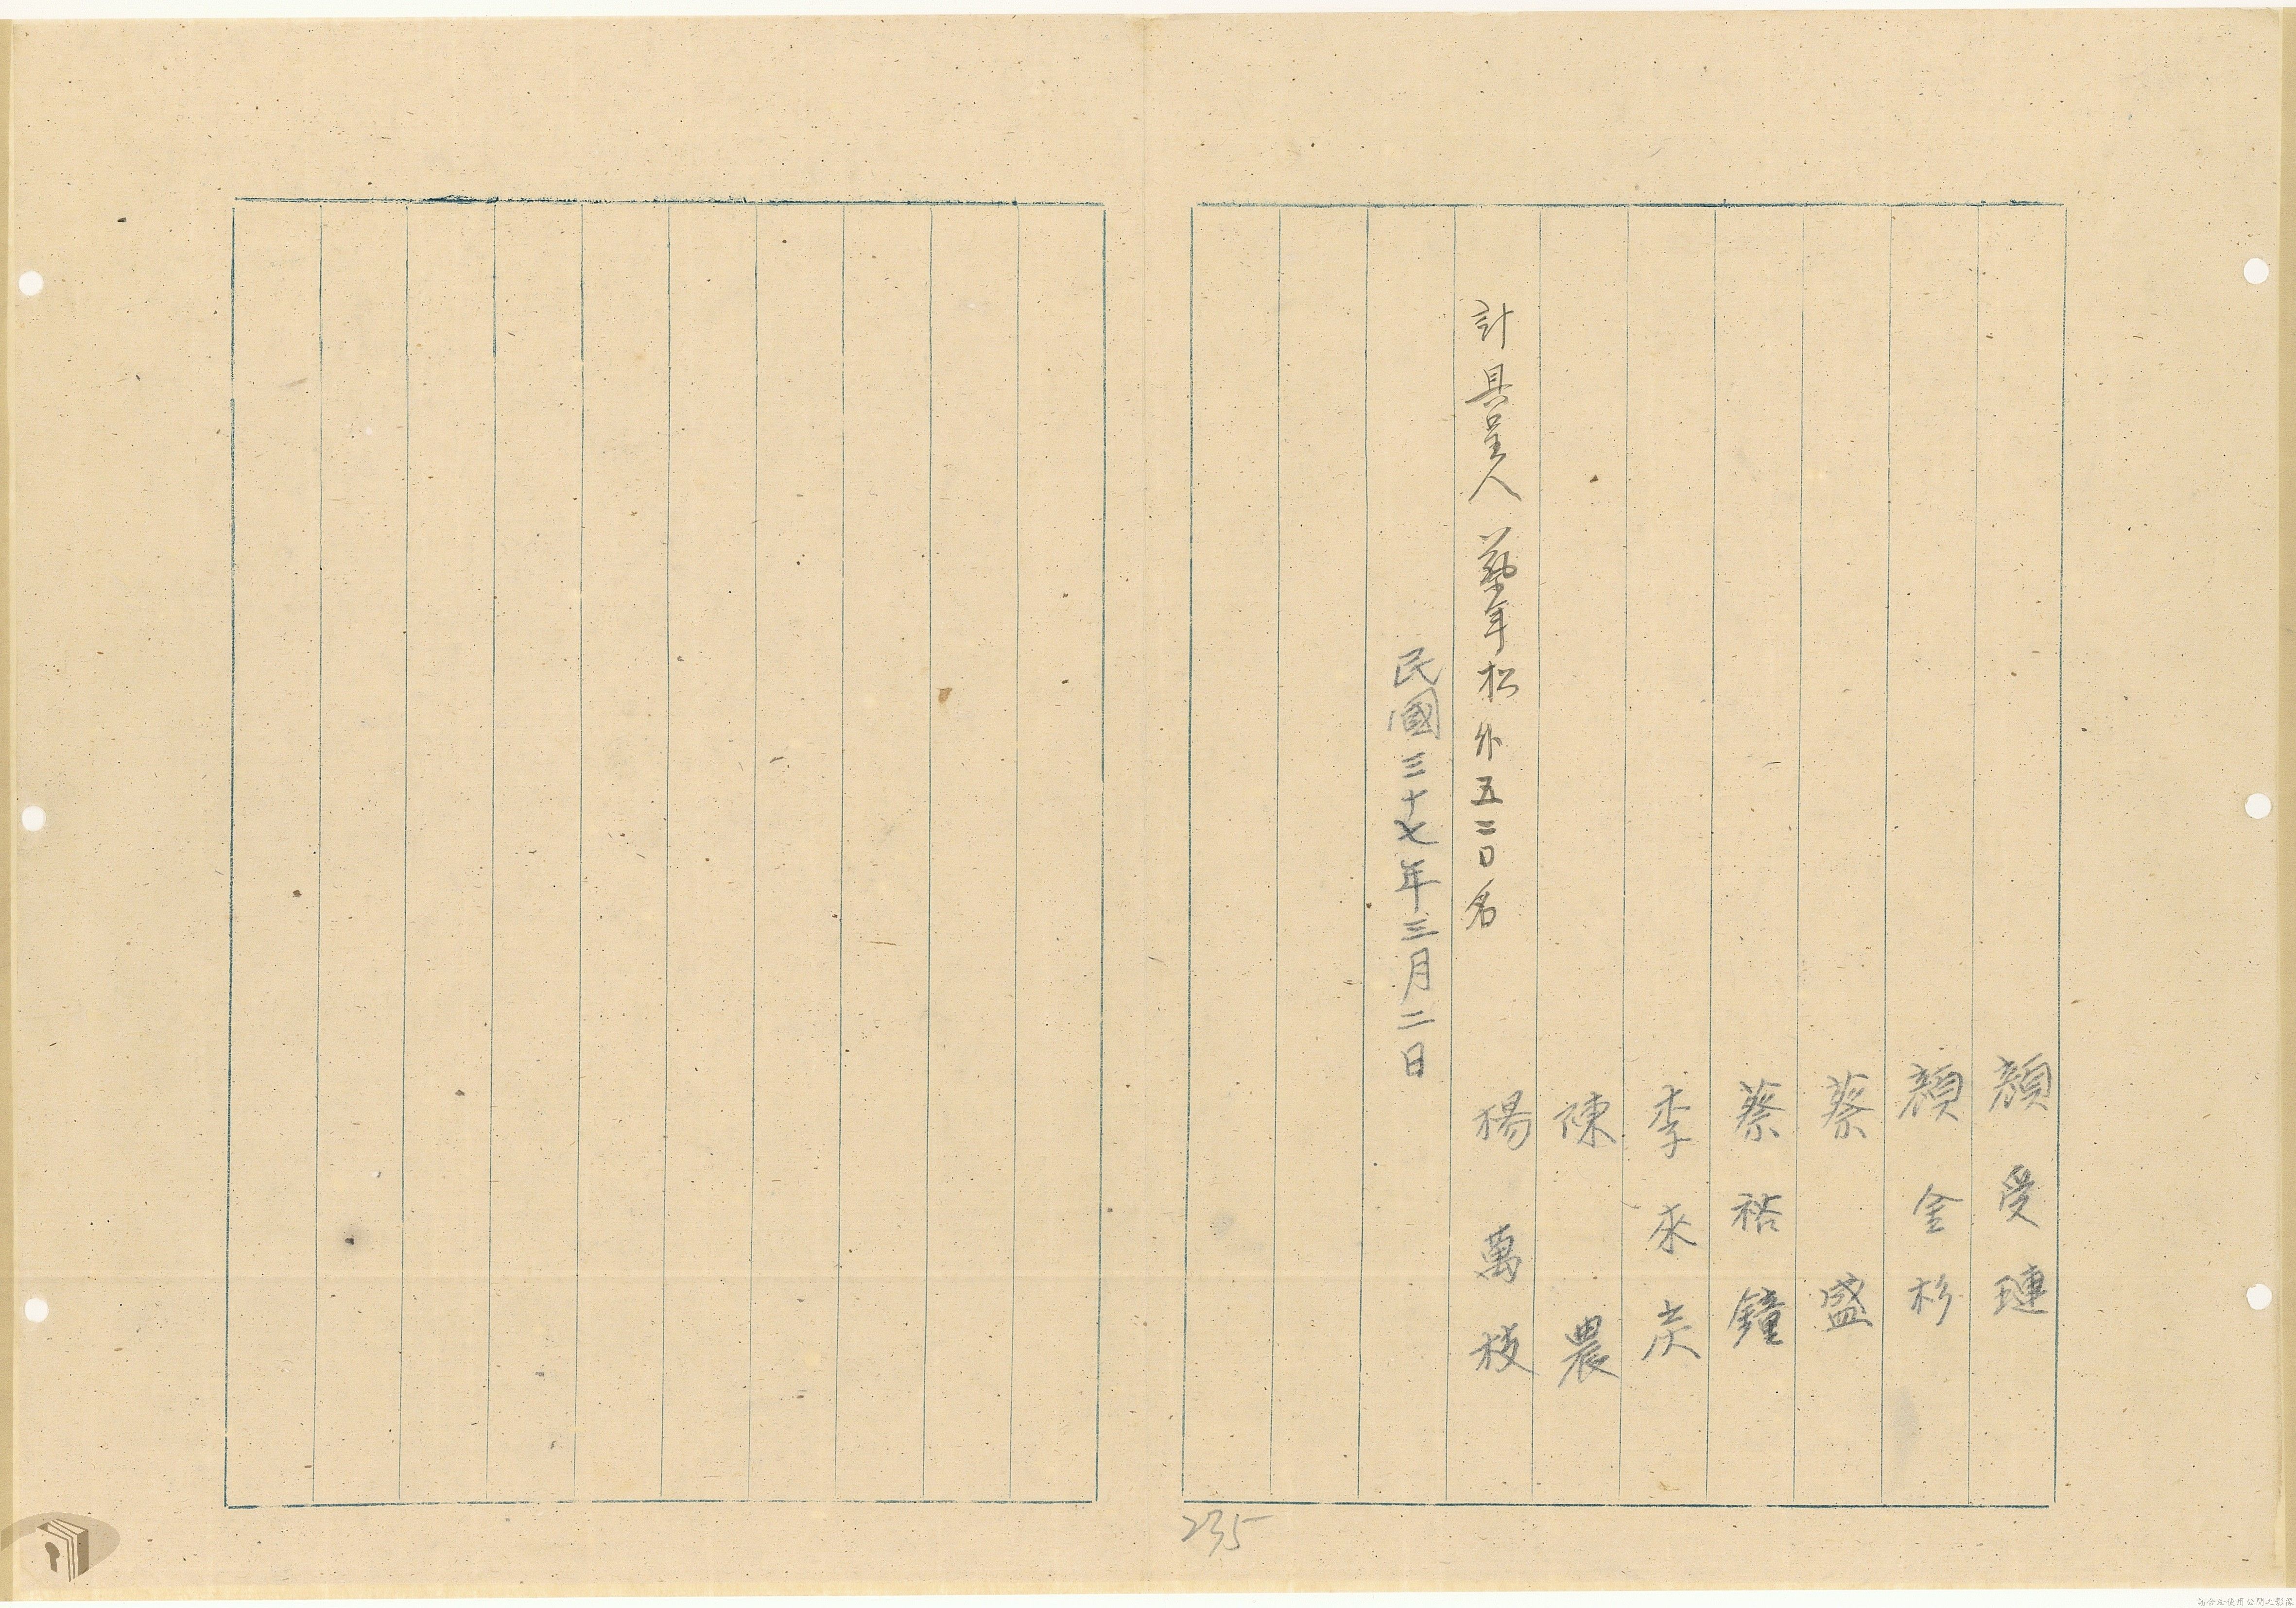 顏受璉
顏金杉
蔡盛
蔡裕鐘
李來炭
陳農
楊萬枝
計具呈人蔡年松外五二〇名
民國三十七年三月二日
235
請合法使用公開之影像